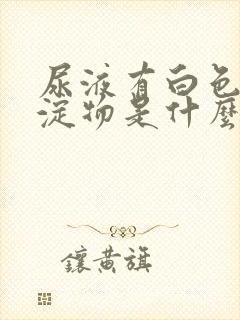 尿液有白色
淀物是什麼
鑲黃旗